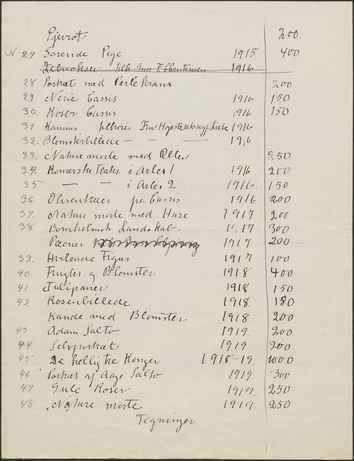 Pjerrot 200
N 27 Sovende Pige 1915 400
1916
28 Portræt med Perle Krans 200
29. Nerie Cassis 1916 150
30. Roser Cassis 1916 150
31 1916
32. Blomsterbillede — — — 1916
33. Nature morte med 550
34. Romerske Teater i Arles 1 1916 200
35 — — i Arles 2 1916 150
36 Oliventræer fra Cassis 1916 200
37 Nature morte med Hare 1917 200
38 Bornholmsk Landskab 1917 300
Pæoner 1917 200
39. Figur 1917 100
40 Fugler og Blomster 1918 400
41 Tulipaner 1918 150
42 Rosenbillede 1918 180
Kande med Blomster 1918 200
43 Adam Salto 1919 200
44 Selvportræt 1919 200
45 De hellig tre Konger 1918-19 1000
46 Portræt af Aage Salto 1919 300
47 Gule Roser 1919 250
48 Nature morte 1919 250
Tegninger